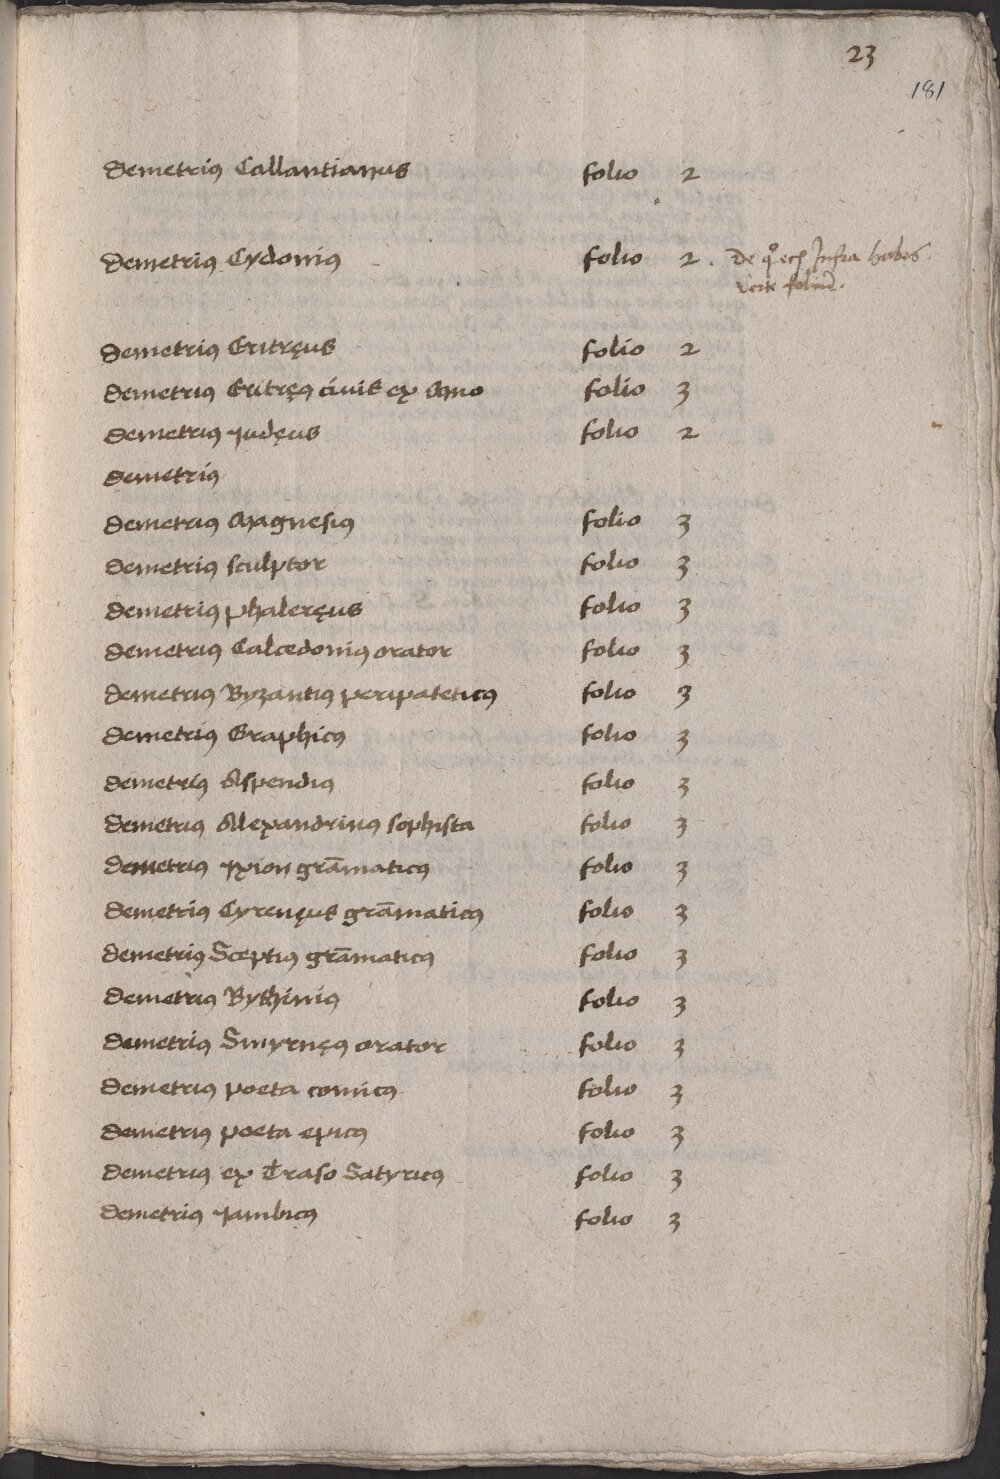 23
181
Demetriꝰ Callantianus folio 2
Demetriꝰ Cydonius folio 2 . De Infra habes
verte foliū.
Demetriꝰ Eritręus folio 2
Demetriꝰ Eritręꝰ civis ex folio 3
Demetriꝰ Iudęus folio 2
Demetriꝰ
Demetriꝰ Magnesiꝰ folio 3
Demetriꝰ sculptor folio 3
Demetriꝰ phaleręus folio 3
Demetriꝰ Calcedoniꝰ orator folio 3
Demetriꝰ Byzantiꝰ peripateticꝰ folio 3
Demetriꝰ Graphicꝰ folio 3
Demetriꝰ Aspendiꝰ folio 3
Demetriꝰ Alexandrinꝰ sophista folio 3
Demetriꝰ Ixion grāmaticꝰ folio 3
Demetriꝰ Cyrenęus grāmaticꝰ folio 3
Demetriꝰ Sceptiꝰ grāmaticꝰ folio 3
Demetriꝰ Bythiniꝰ folio 3
Demetriꝰ Smyrnęꝰ orator folio 3
Demetriꝰ poeta comicꝰ folio 3
Demetriꝰ poeta epicꝰ folio 3
Demetriꝰ ex Traso Satyricꝰ folio 3
Demetriꝰ Iambicꝰ folio 3